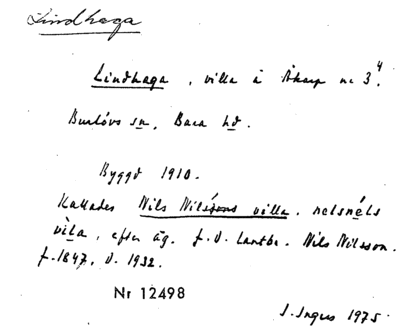 Lindhaga
Lindhaga, villa å Åkarp nr 3⁴.
Burlövs sn, Bara hd.
Byggd 1910.
Kallades Nils Nilssons villa. nelsnéls
vìla, efter äg. f.d. lantbr. Nils Nilsson.
f. 1847. d. 1932.
Nr 12498
J. Ingers 1975